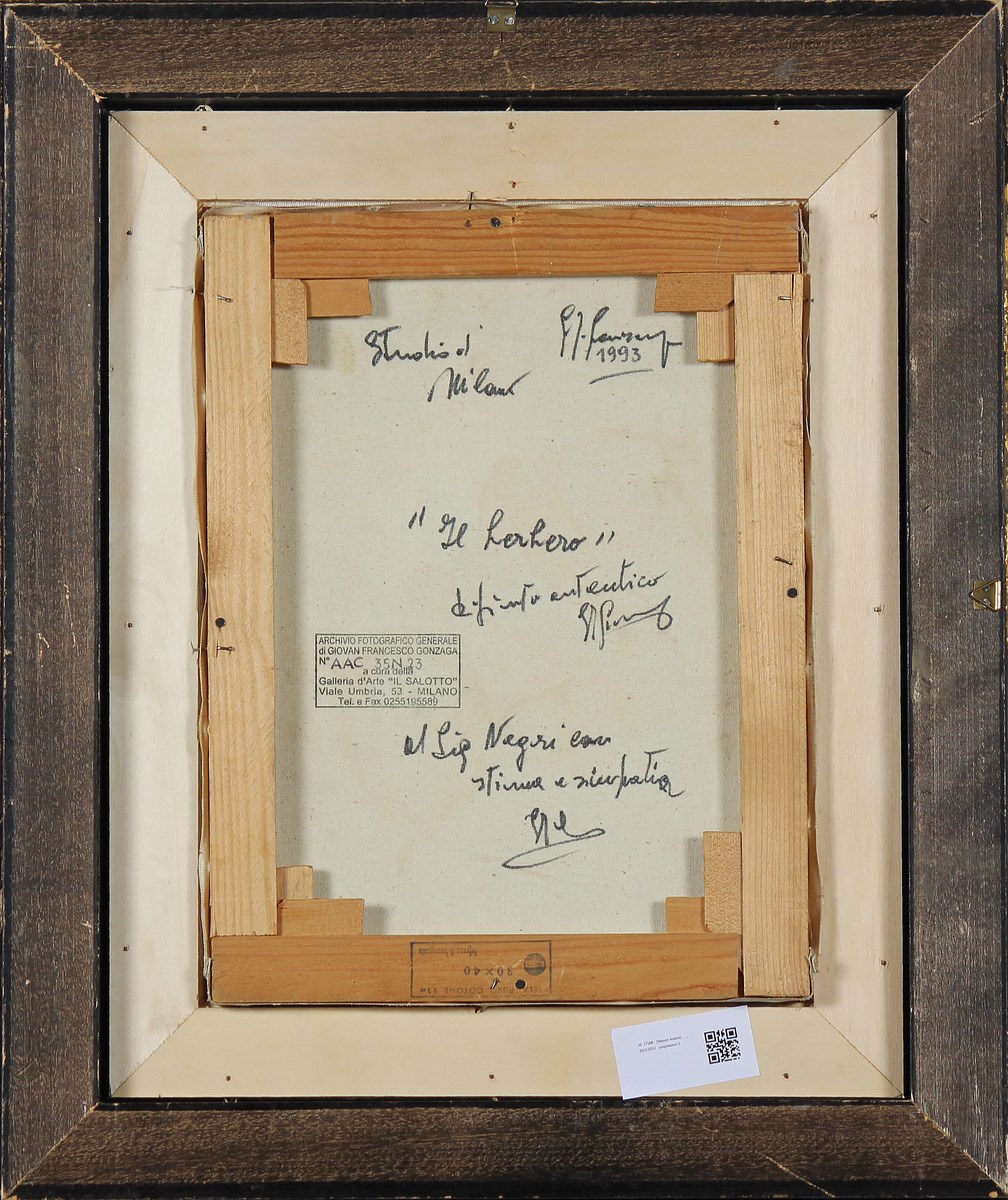 Studio di
Milano
GF. Gonzaga
1993
"Il berbero"
dipinto autentico
ARCHIVIO FOTOGRAFICO GENERALE
di GIOVAN FRANCESCO GONZAGA
N° AAC 35N 23
a cura della
Galleria d'Arte "IL SALOTTO"
Viale Umbria, 53 - MILANO
Tel. e Fax 0255195589
al Sig Negri con
stima e simpatia
30×40
COTONE